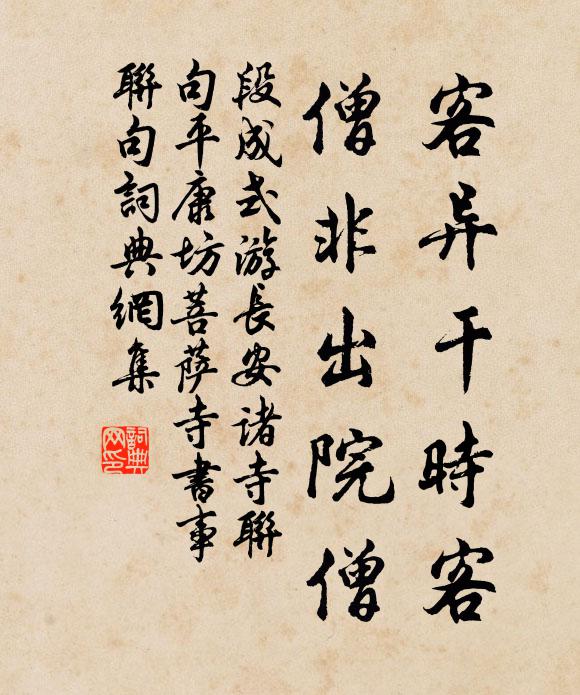 客异干時客
僧非出院僧
段成式游長安諸寺聯
句平康坊菩薩寺書事
聯句詞典網集
詞典
网印